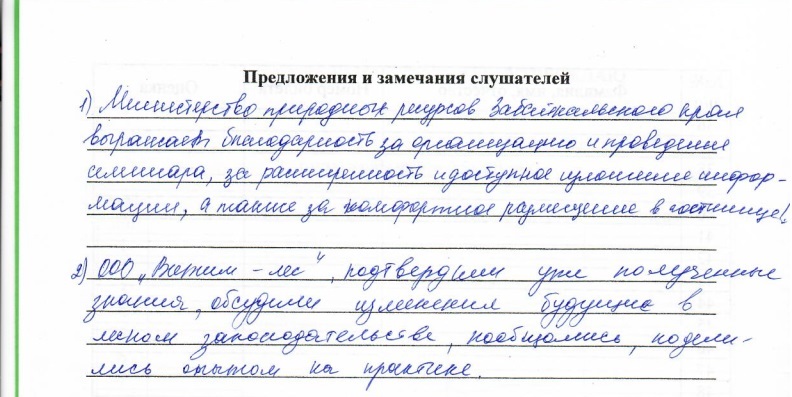 Предложения и замечания слушателей
1) Министерство природных ресурсов Забайкальского края
выражает благодарность за организацию и проведение
семинара, за расширенность и доступное изложение инфор-
мации, а также за комфортное размещение в гостинице!
2) ООО "Витим-лес", подтвердили уже полученные
знания, обсудили изменения будущие в
лесном законодательстве, пообщались, подели-
лись опытом на практике.